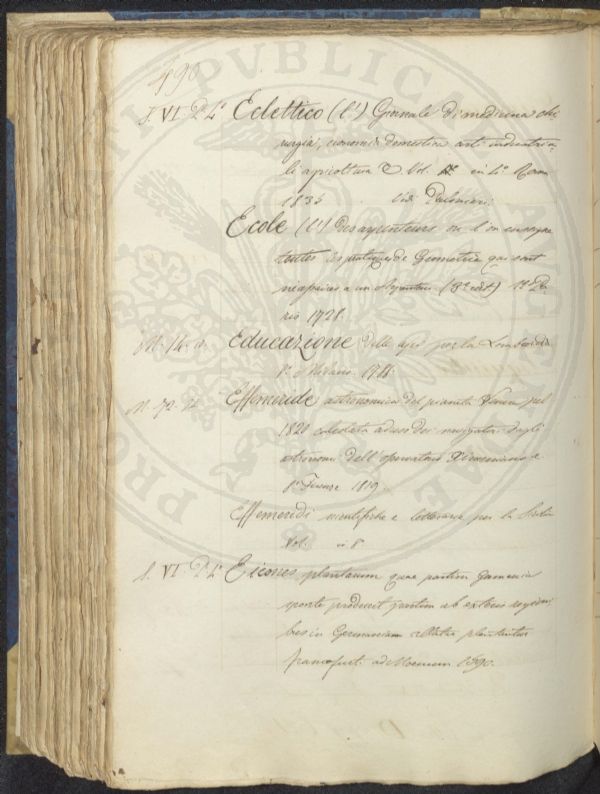 490
Eclettico (l') Giornale di medicina chi
rurgia, economia domestica arti industria
li agricoltura & Vol. in 4° Roma
1835
Ecole (l') des arpenteurs ou l'on enseigne
toutes les pratiques de Geometrie qui sont
necessaires a un Arpenteur (3e edit.) 12° Pa
ris 1728.
M. 14. Educazione delle api per la Lombardia
8° Milano 1788.
M. 72. Effemeride astronomica del pianeta Venere pel
1820 calcolata ad uso dei naviganti dagli
astronomi dell'osservatorio Ximeniano
8° Firenze 1819
Effemeridi scientifiche e letterarie per la Sicilia
Vol. in 8°
S. VI. Eicones plantarum quae partim Germania
sponte producit partim ab exteris regioni
bus in Germaniam plantantur
Francofurti ad Moenum 1590.
PUBLICA